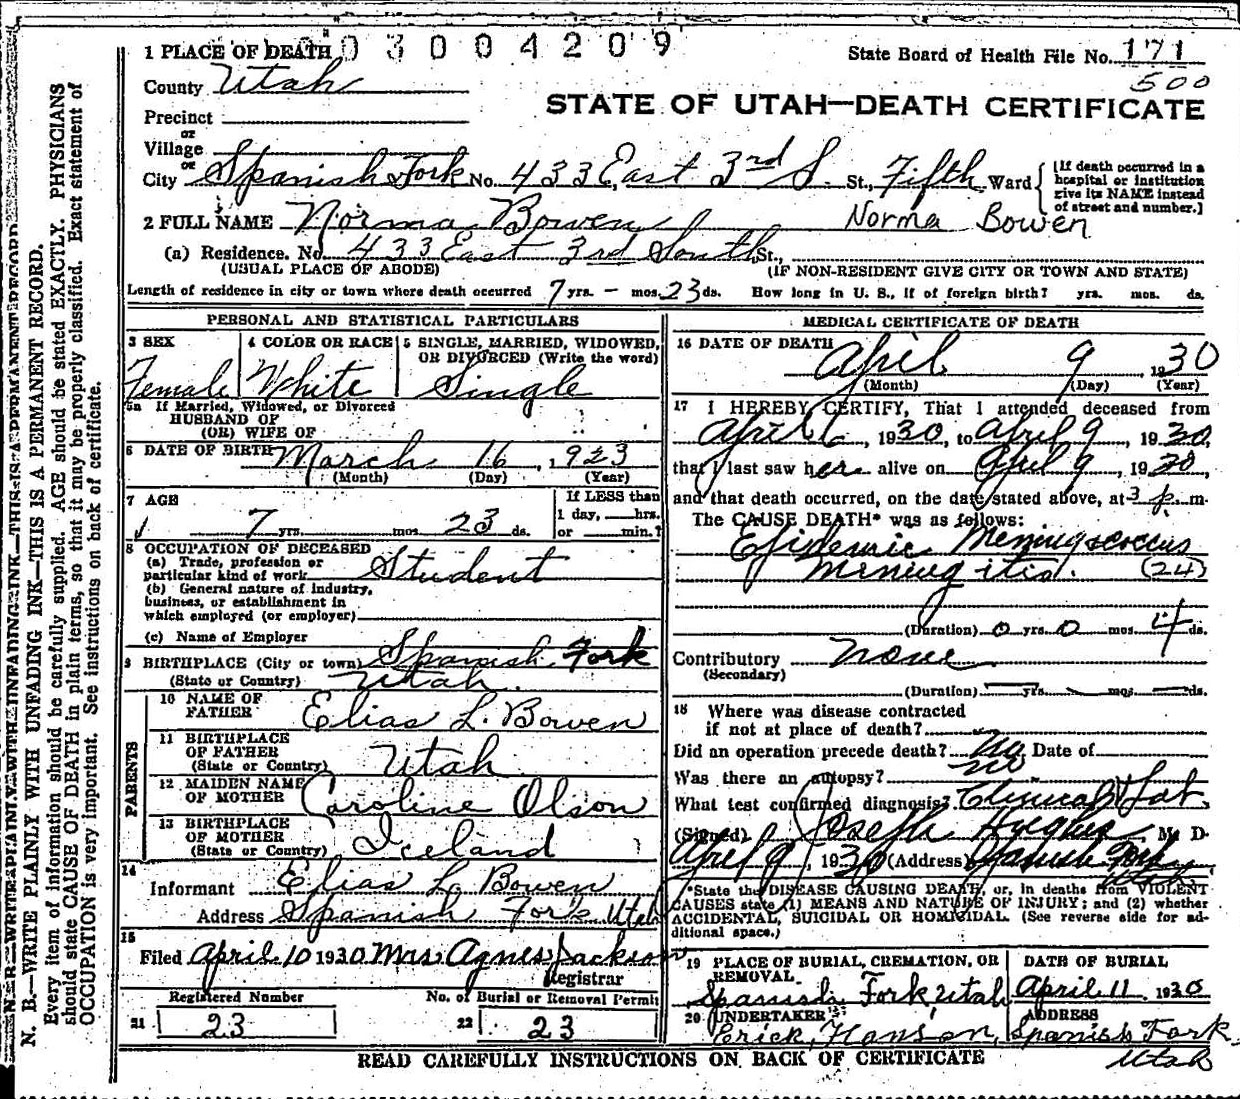 3004209
State Board of Health File No. 171
500
STATE OF UTAH—DEATH CERTIFICATE
1 PLACE OF DEATH
County Utah
Precinct
or
Village
or
City Spanish Fork No. 433 East 3rd S. St., Fifth Ward
[If death occurred in a hospital or institution give its NAME instead of street and number.]
2 FULL NAME Norma Bowen Norma Bowen
(a) Residence. No. 433 East 3rd South St.,
(USUAL PLACE OF ABODE) (IF NON-RESIDENT GIVE CITY OR TOWN AND STATE)
Length of residence in city or town where death occurred 7 yrs. - mos. 23 ds. How long in U. S., if of foreign birth? yrs. mos. ds.
PERSONAL AND STATISTICAL PARTICULARS
3 SEX 4 COLOR OR RACE 5 SINGLE, MARRIED, WIDOWED, OR DIVORCED (Write the word)
Female White Single
5a If Married, Widowed, or Divorced
HUSBAND OF
(OR) WIFE OF
6 DATE OF BIRTH March 16, 1923
(Month) (Day) (Year)
7 AGE If LESS than
7 yrs. mos. 23 ds. 1 day, hrs.
or min.?
8 OCCUPATION OF DECEASED
(a) Trade, profession or
particular kind of work Student
(b) General nature of industry,
business, or establishment in
which employed (or employer)
(c) Name of Employer
9 BIRTHPLACE (City or town) Spanish Fork
(State or Country) Utah
PARENTS
10 NAME OF
FATHER Elias L. Bowen
11 BIRTHPLACE
OF FATHER
(State or Country) Utah
12 MAIDEN NAME
OF MOTHER Caroline Olson
13 BIRTHPLACE
OF MOTHER
(State or Country) Iceland
14
Informant Elias L. Bowen
Address Spanish Fork Utah
15
Filed April 10 1930 Mrs Agnes Jackson
Registrar
Registered Number No. of Burial or Removal Permit
21 23 22 23
MEDICAL CERTIFICATE OF DEATH
16 DATE OF DEATH April 9, 1930
(Month) (Day) (Year)
17 I HEREBY CERTIFY, That I attended deceased from
April 6, 1930, to April 9, 1930,
that I last saw her alive on April 9, 1930,
and that death occurred, on the date stated above, at 3 p. m.
The CAUSE DEATH* was as follows:
Epidemic Meningococcus
Meningitis. (24)
(Duration) 0 yrs. 0 mos. 4 ds.
Contributory None
(Secondary)
(Duration) yrs. mos. ds.
18 Where was disease contracted
if not at place of death?
Did an operation precede death? No Date of
Was there an autopsy? no
What test confirmed diagnosis? Clinical & Lab.
(Signed) Joseph Hughes M. D.
April 9, 1930 (Address) Spanish Fork, Utah
*State the DISEASE CAUSING DEATH, or, in deaths from VIOLENT
CAUSES state (1) MEANS AND NATURE OF INJURY; and (2) whether
ACCIDENTAL, SUICIDAL OR HOMICIDAL. (See reverse side for ad-
ditional space.)
19 PLACE OF BURIAL, CREMATION, OR REMOVAL DATE OF BURIAL
Spanish Fork Utah April 11 1930
20 UNDERTAKER ADDRESS
Erick Hanson, Spanish Fork, Utah
READ CAREFULLY INSTRUCTIONS ON BACK OF CERTIFICATE
N. B.—WRITE PLAINLY WITH UNFADING INK—THIS IS A PERMANENT RECORD.
Every item of information should be carefully supplied. AGE should be stated EXACTLY. PHYSICIANS
should state CAUSE OF DEATH in plain terms, so that it may be properly classified. Exact statement of
OCCUPATION is very important. See instructions on back of certificate.